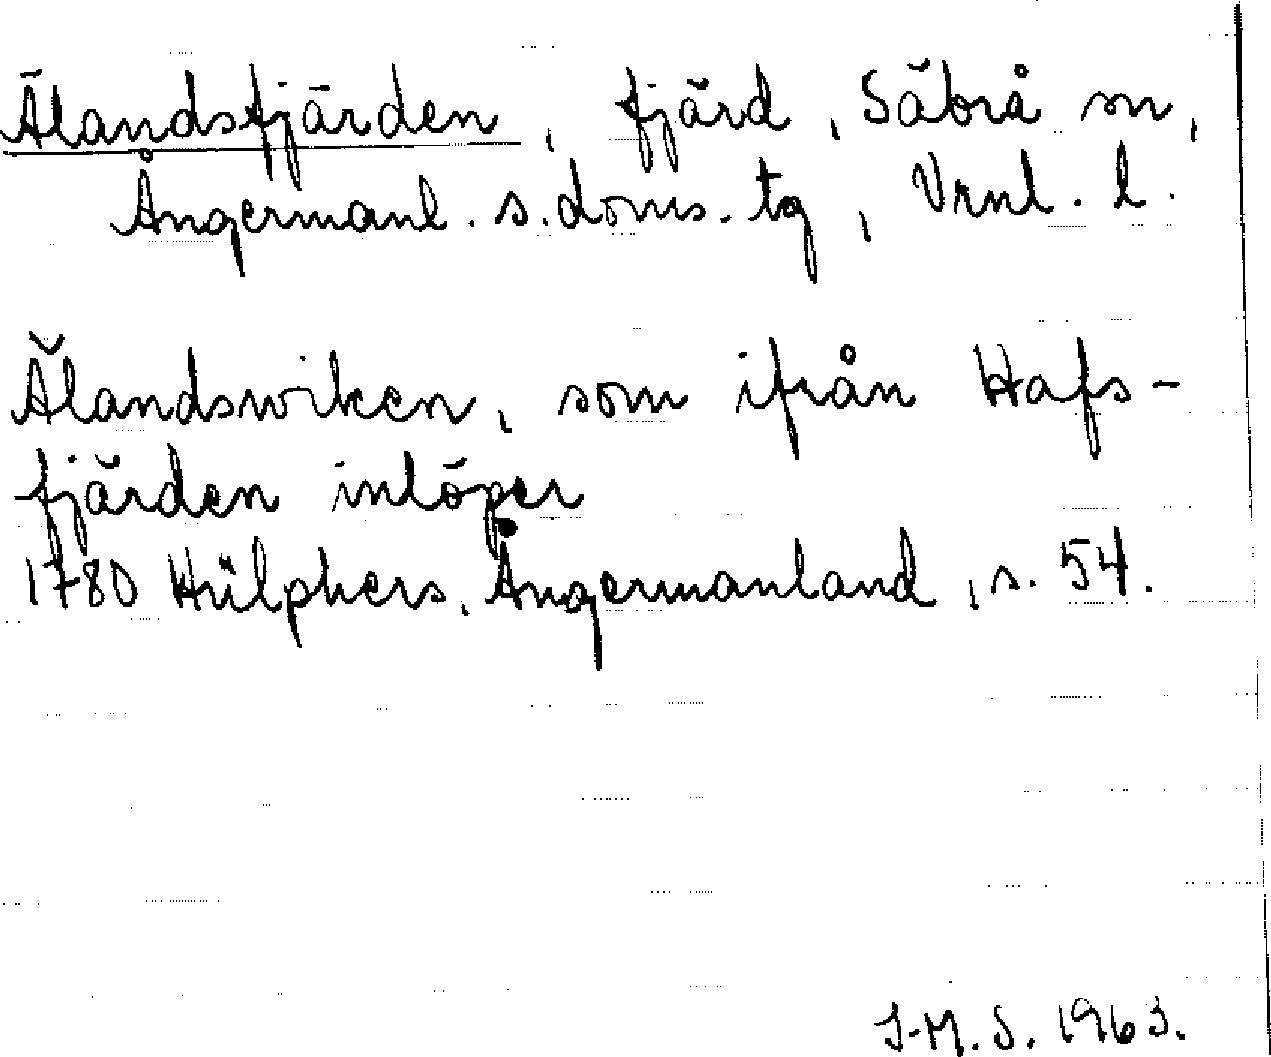 Älandsfjärden, fjärd, Säbrå sn,
Ångermanl. s. doms. tg, Vrnl. l.
Älandswiken, som ifrån Hafs-
fjärden inlöper
1780 Hülphers, Ångermanland, s. 54.
I-M. S. 1963.